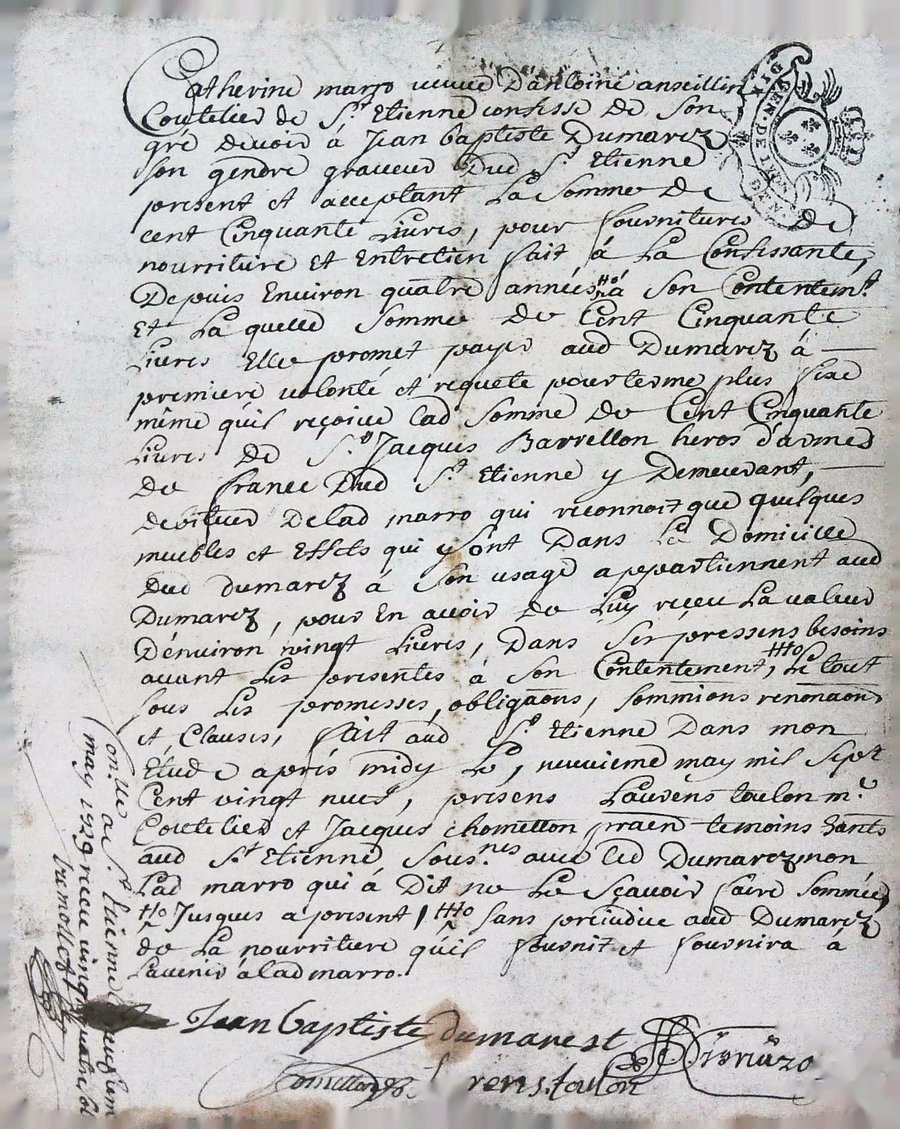 Catherine marro veuve D'antoine anseillin
Coutelier de St Etienne confesse de son
gré devoir à Jean baptiste Dumarez
son gendre graveur Dud St Etienne
present et acceptant La Somme de
cent Cinquante Livres, pour fournitures de
nourriture et Entretien fait à La Confessante,
Depuis Environ quatre années à Son Contentemt
Et La quelle Somme de Cent Cinquante
Livres Elle promet payer aud Dumarez à
premiere volonté et requete pour terme plus fixe
même qu'il reçoive lad Somme de Cent Cinquante
Livres de Sr Jacques Barrellon heros d'armes
de france Dud St Etienne y Demeurant,
debiteur Delad marro qui reconnoit que quelques
meubles et Effets qui sont Dans Le Domicille
Dud dumarez à Son usage appartiennent aud
Dumarez, pour En avoir de Luy reçeu La valeur
D'environ vingt Livres, Dans Ses pressens besoins
avant Les presentes à Son Contentement, Le tout
sous Les promesses, obligaons, sommions renonaons
et Clauses, fait aud St Etienne Dans mon
Etude après midy Le, neuvieme may mil Sept
Cent vingt neuf, presens Laurens toulon mr
Coutelier et Jacques chometton praen temoins hants
aud St Etienne Sous.nés avec led Dumarez non
Lad marro qui à Dit ne Le Sçavoir faire Sommée
Jusques a present / Sans prejudice aud Dumarez
de La nourriture qu'il fournit et fournira a
L'avenir à lad marro.
Jean baptiste dumarest
rens. toulon
Con.lle a St Etienne
may 1729 receu vingt quatre
GEN. DE
DIX